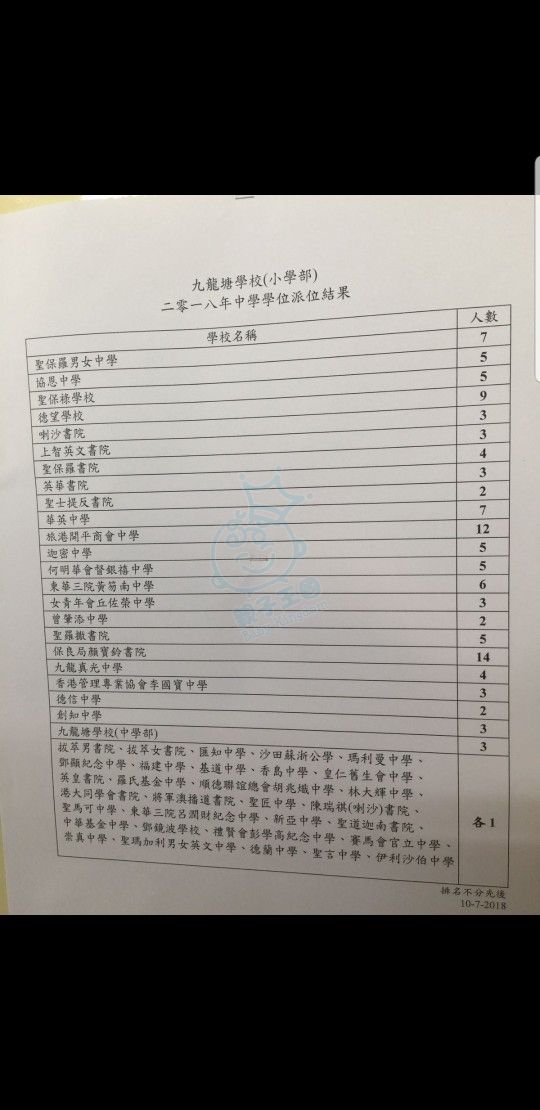 九龍塘學校(小學部)
二零一八年中學學位派位結果
學校名稱 人數
聖保羅男女中學 7
協恩中學 5
聖保祿學校 5
德望學校 9
喇沙書院 3
上智英文書院 3
聖保羅書院 4
英華書院 3
聖士提反書院 2
華英中學 7
旅港開平商會中學 12
迦密中學 5
何明華會督銀禧中學 5
東華三院黃笏南中學 6
女青年會丘佐榮中學 3
曾肇添中學 2
聖羅撒書院 5
保良局顏寶鈴書院 14
九龍真光中學 4
香港管理專業協會李國寶中學 3
德信中學 2
創知中學 3
九龍塘學校(中學部) 3
拔萃男書院、拔萃女書院、匯知中學、沙田蘇浙公學、瑪利曼中學、
鄧顯紀念中學、福建中學、基道中學、香島中學、皇仁舊生會中學、
英皇書院、羅氏基金中學、順德聯誼總會胡兆熾中學、林大輝中學、
港大同學會書院、將軍澳播道書院、聖匠中學、陳瑞祺(喇沙)書院、
聖馬可中學、東華三院呂潤財紀念中學、新亞中學、聖道迦南書院、
中華基金中學、鄧鏡波學校、禮賢會彭學高紀念中學、賽馬會官立中學、
崇真中學、聖瑪加利男女英文中學、德蘭中學、聖言中學、伊利沙伯中學
各1
排名不分先後
10-7-2018
親子王國